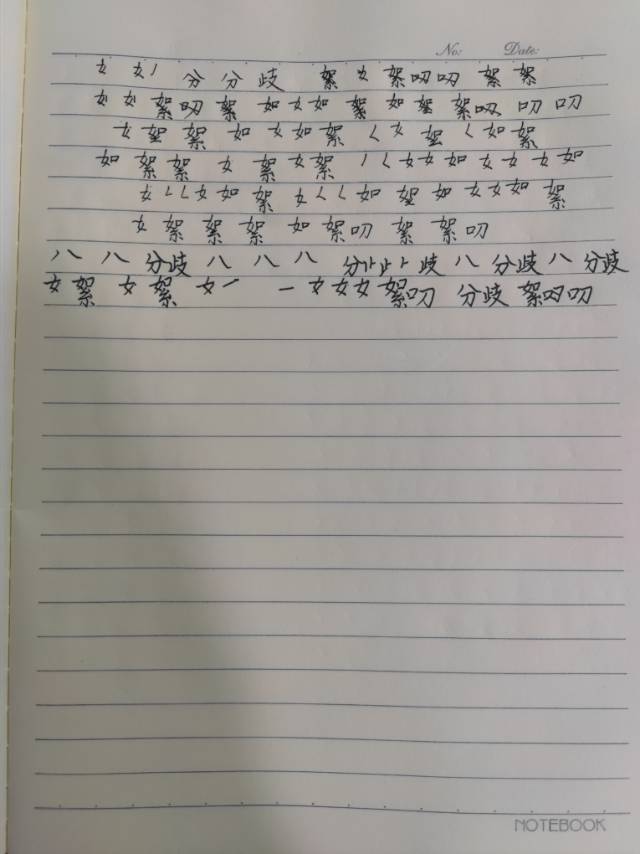 No: Date:
女 女丿 分 分 歧 絮 女 絮叨叨 絮 絮
女 女 絮叨 絮 如 女 女 如 絮 如 絮叨 叨 叨
女 絮 如 女 如 絮 ㄑ 女 ㄑ 如 絮
如 絮 絮 女 絮 女 絮 丿 ㄑ ㄑ 女 女 如 女 女 女 如
女 ㄑ ㄑ 女 如 絮 女 ㄑ ㄑ 如 如 女 女 如 絮
女 絮 絮 絮 如 絮叨 絮 絮叨
八 八 分歧 八 八 八 分 歧 八 分歧 八 分歧
女 絮 女 絮 女 一 女 女 女 絮叨 分歧 絮叨叨
NOTEBOOK